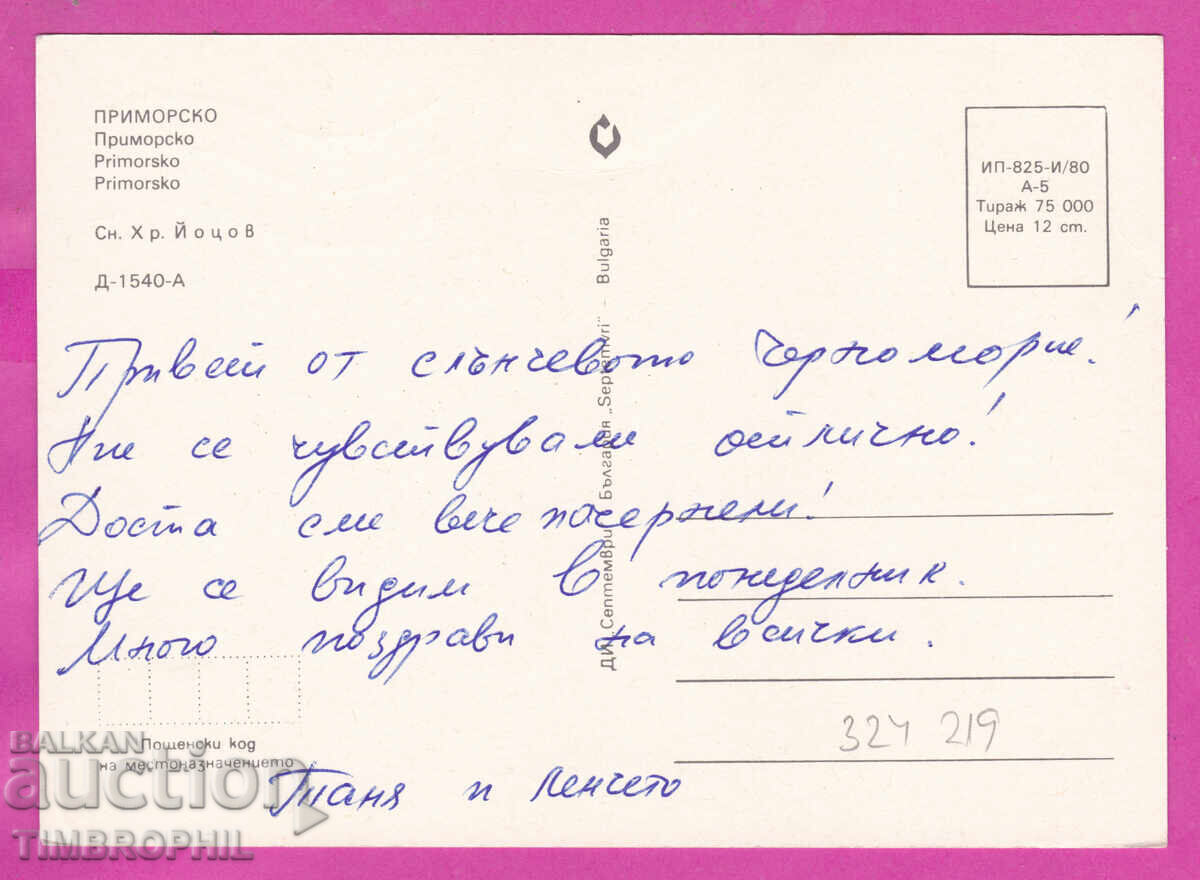 ПРИМОРСКО
Приморско
Primorsko
Primorsko
Сн. Хр. Йоцов
Д-1540-А
ИП-825-И/80
А-5
Тираж 75 000
Цена 12 ст.
ДИ „Септември" България „Septemvri" – Bulgaria
Привет от слънчевото Черноморие!
Ние се чувствуваме отлично!
Доста сме вече почернени!
Ще се видим в понеделник.
Много поздрави на всички.
Пощенски код
на местоназначението
Таня и Ленчето
324 219
BALKAN
auction
TIMBROPHIL